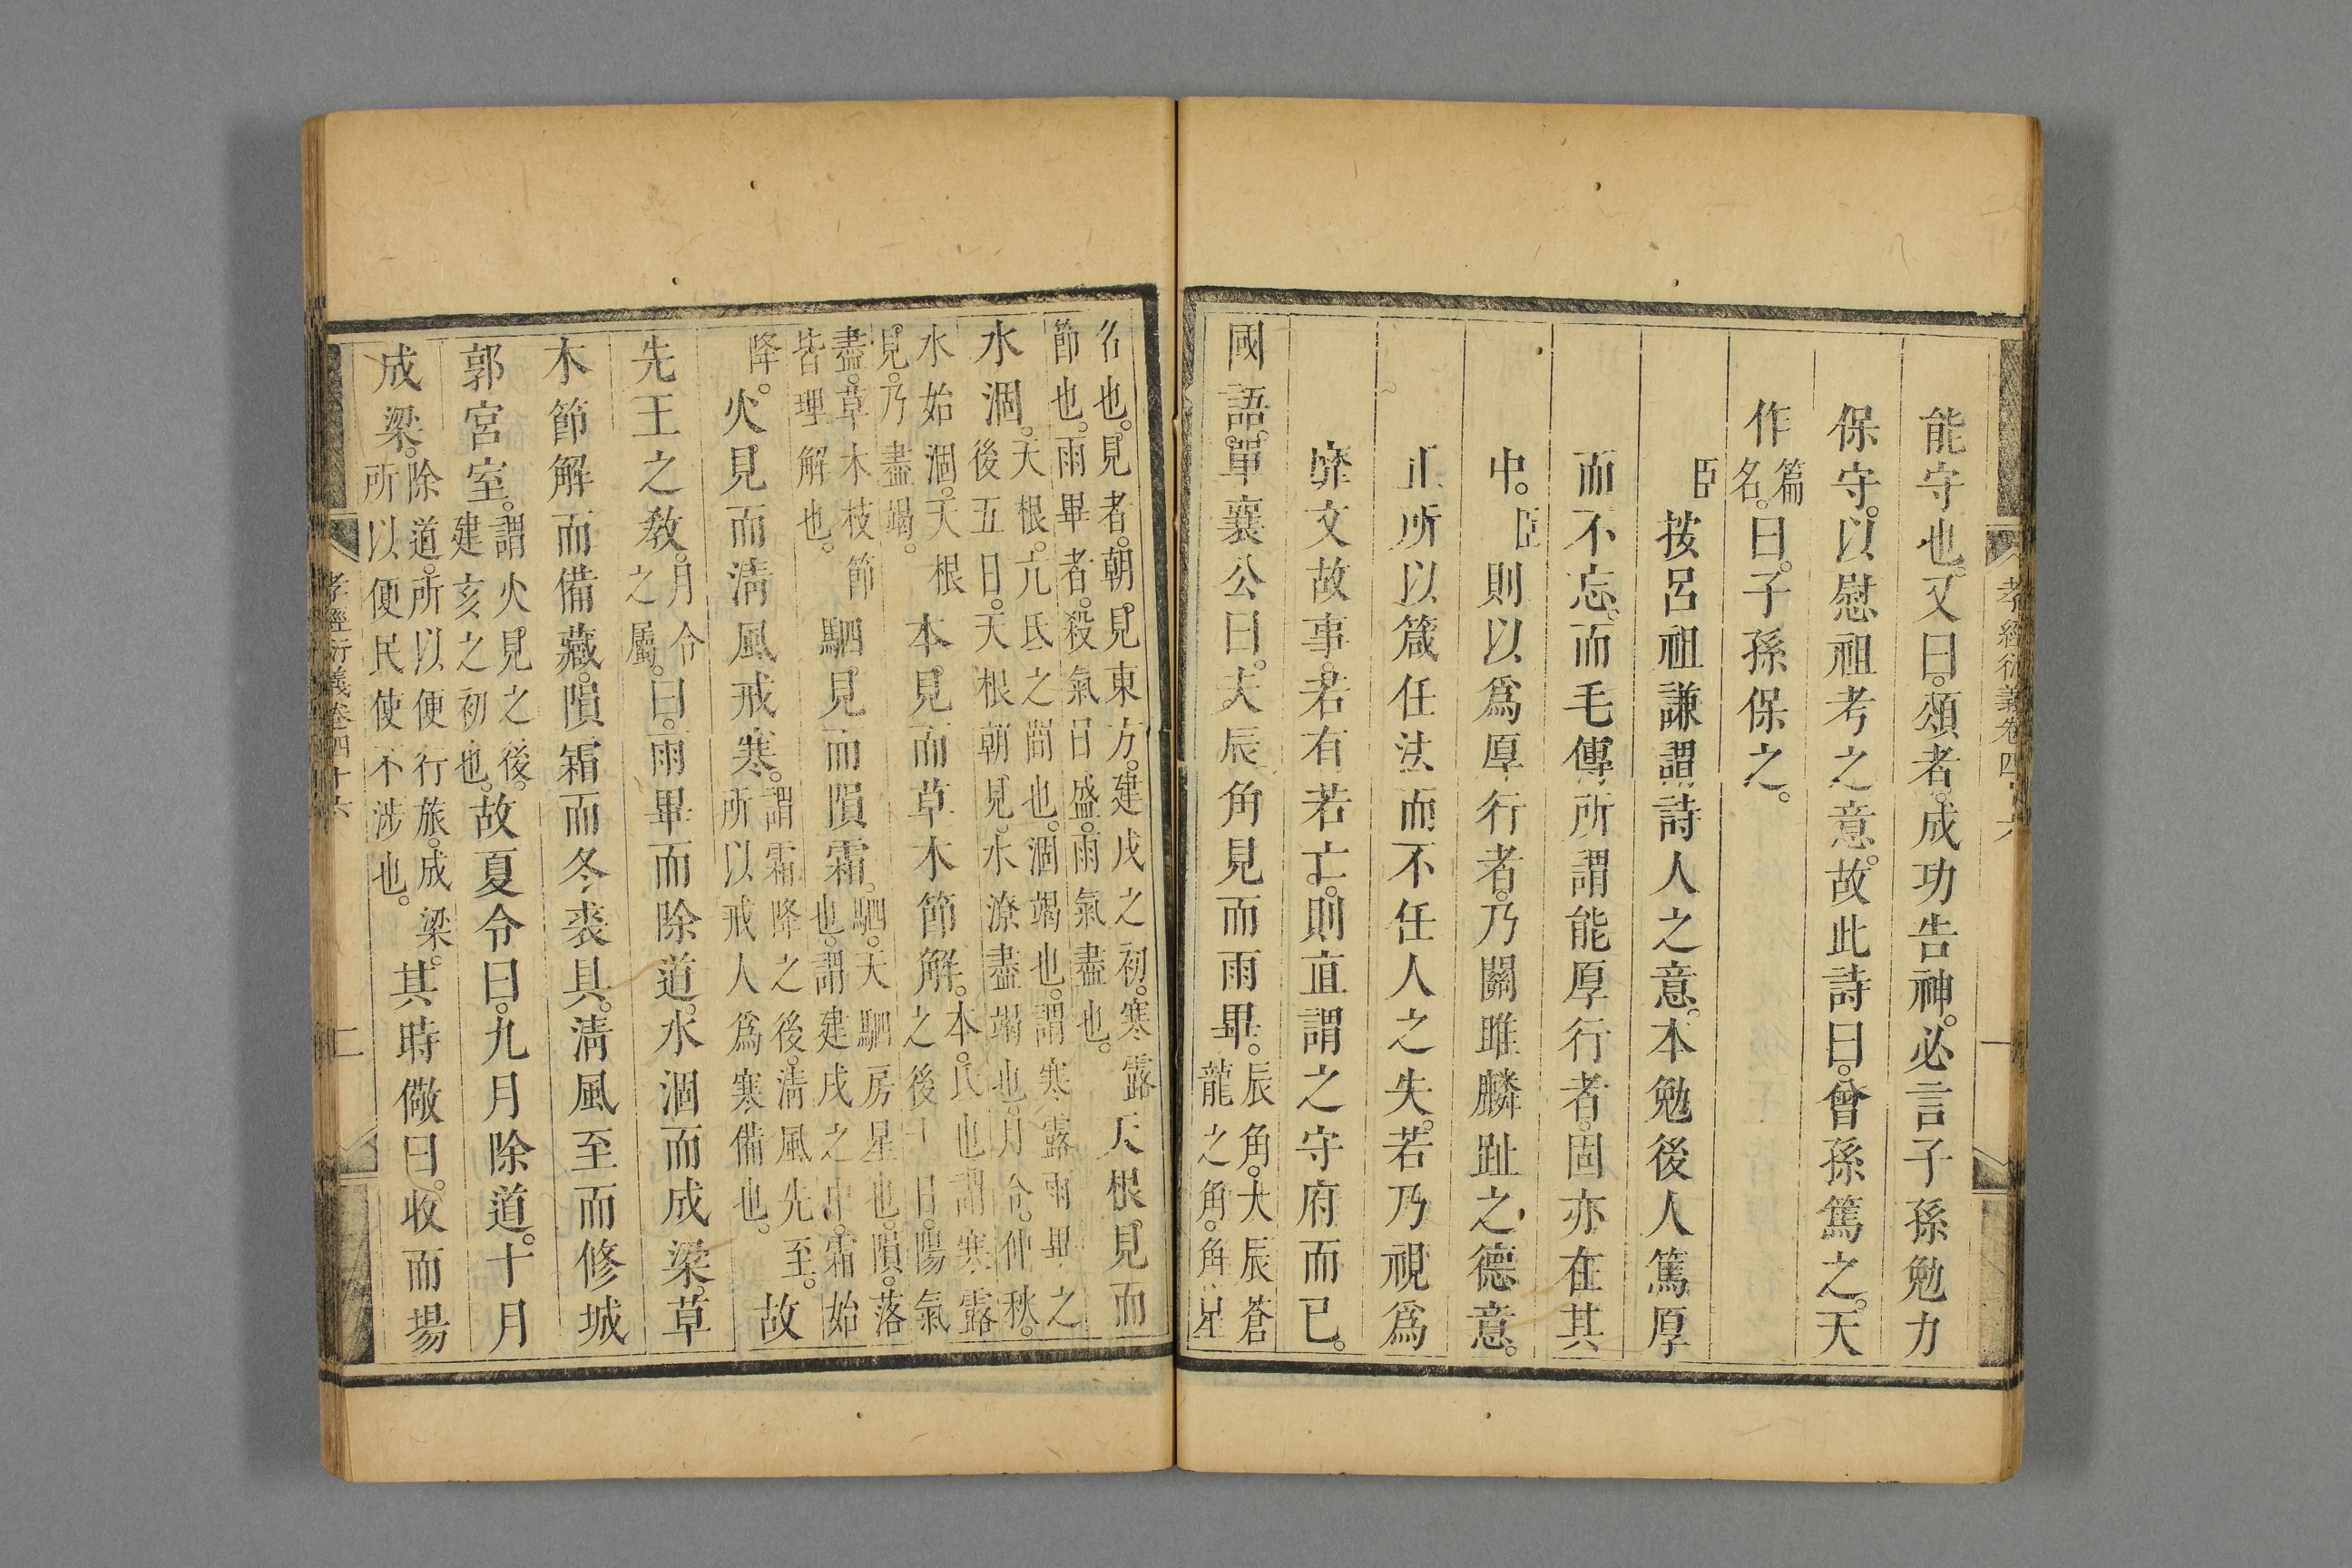 孝經衍義卷四十六
能守也。又曰。頌者。成功告神。必言子孫勉力
保守。以慰祖考之意。故此詩曰。曾孫篤之。天
作篇名。曰。子孫保之。
臣按呂祖謙謂詩人之意。本勉後人篤厚
而不忘。而毛傳所謂能厚行者。固亦在其
中。臣則以爲厚行者。乃關雎麟趾之德意。
正所以箴任法而不任人之失。若乃視爲
靡文故事。若有若亡。則直謂之守府而已。
國語。單襄公曰。夫辰角見而雨畢。辰角。大辰蒼龍之角。角。星
名也。見者。朝見東方。建戌之初。寒露節也。雨畢者。殺氣日盛。雨氣盡也。天根見而
水涸。天根。亢氐之間也。涸竭也。謂寒露雨畢之後五日。天根朝見。水潦盡竭也。月令。仲秋。
水始涸。天根見。乃盡竭。本見而草木節解。本。氐也謂寒露之後十日。陽氣
盡。草木枝節皆理解也。駟見而隕霜。駟。天駟房星也。隕。落也。謂建戌之中。霜始
降。火見而清風戒寒。謂霜降之後。清風先至。所以戒人爲寒備也。故
先王之教。月令之屬。曰。雨畢而除道。水涸而成梁。草
木節解而備藏。隕霜而冬裘具。清風至而修城
郭宮室。謂火見之後。建亥之初也。故夏令曰。九月除道。十月
成梁。除道。所以便行旅。成梁。所以便民使不涉也。其時儆曰。收而場
孝經衍義卷四十六 二